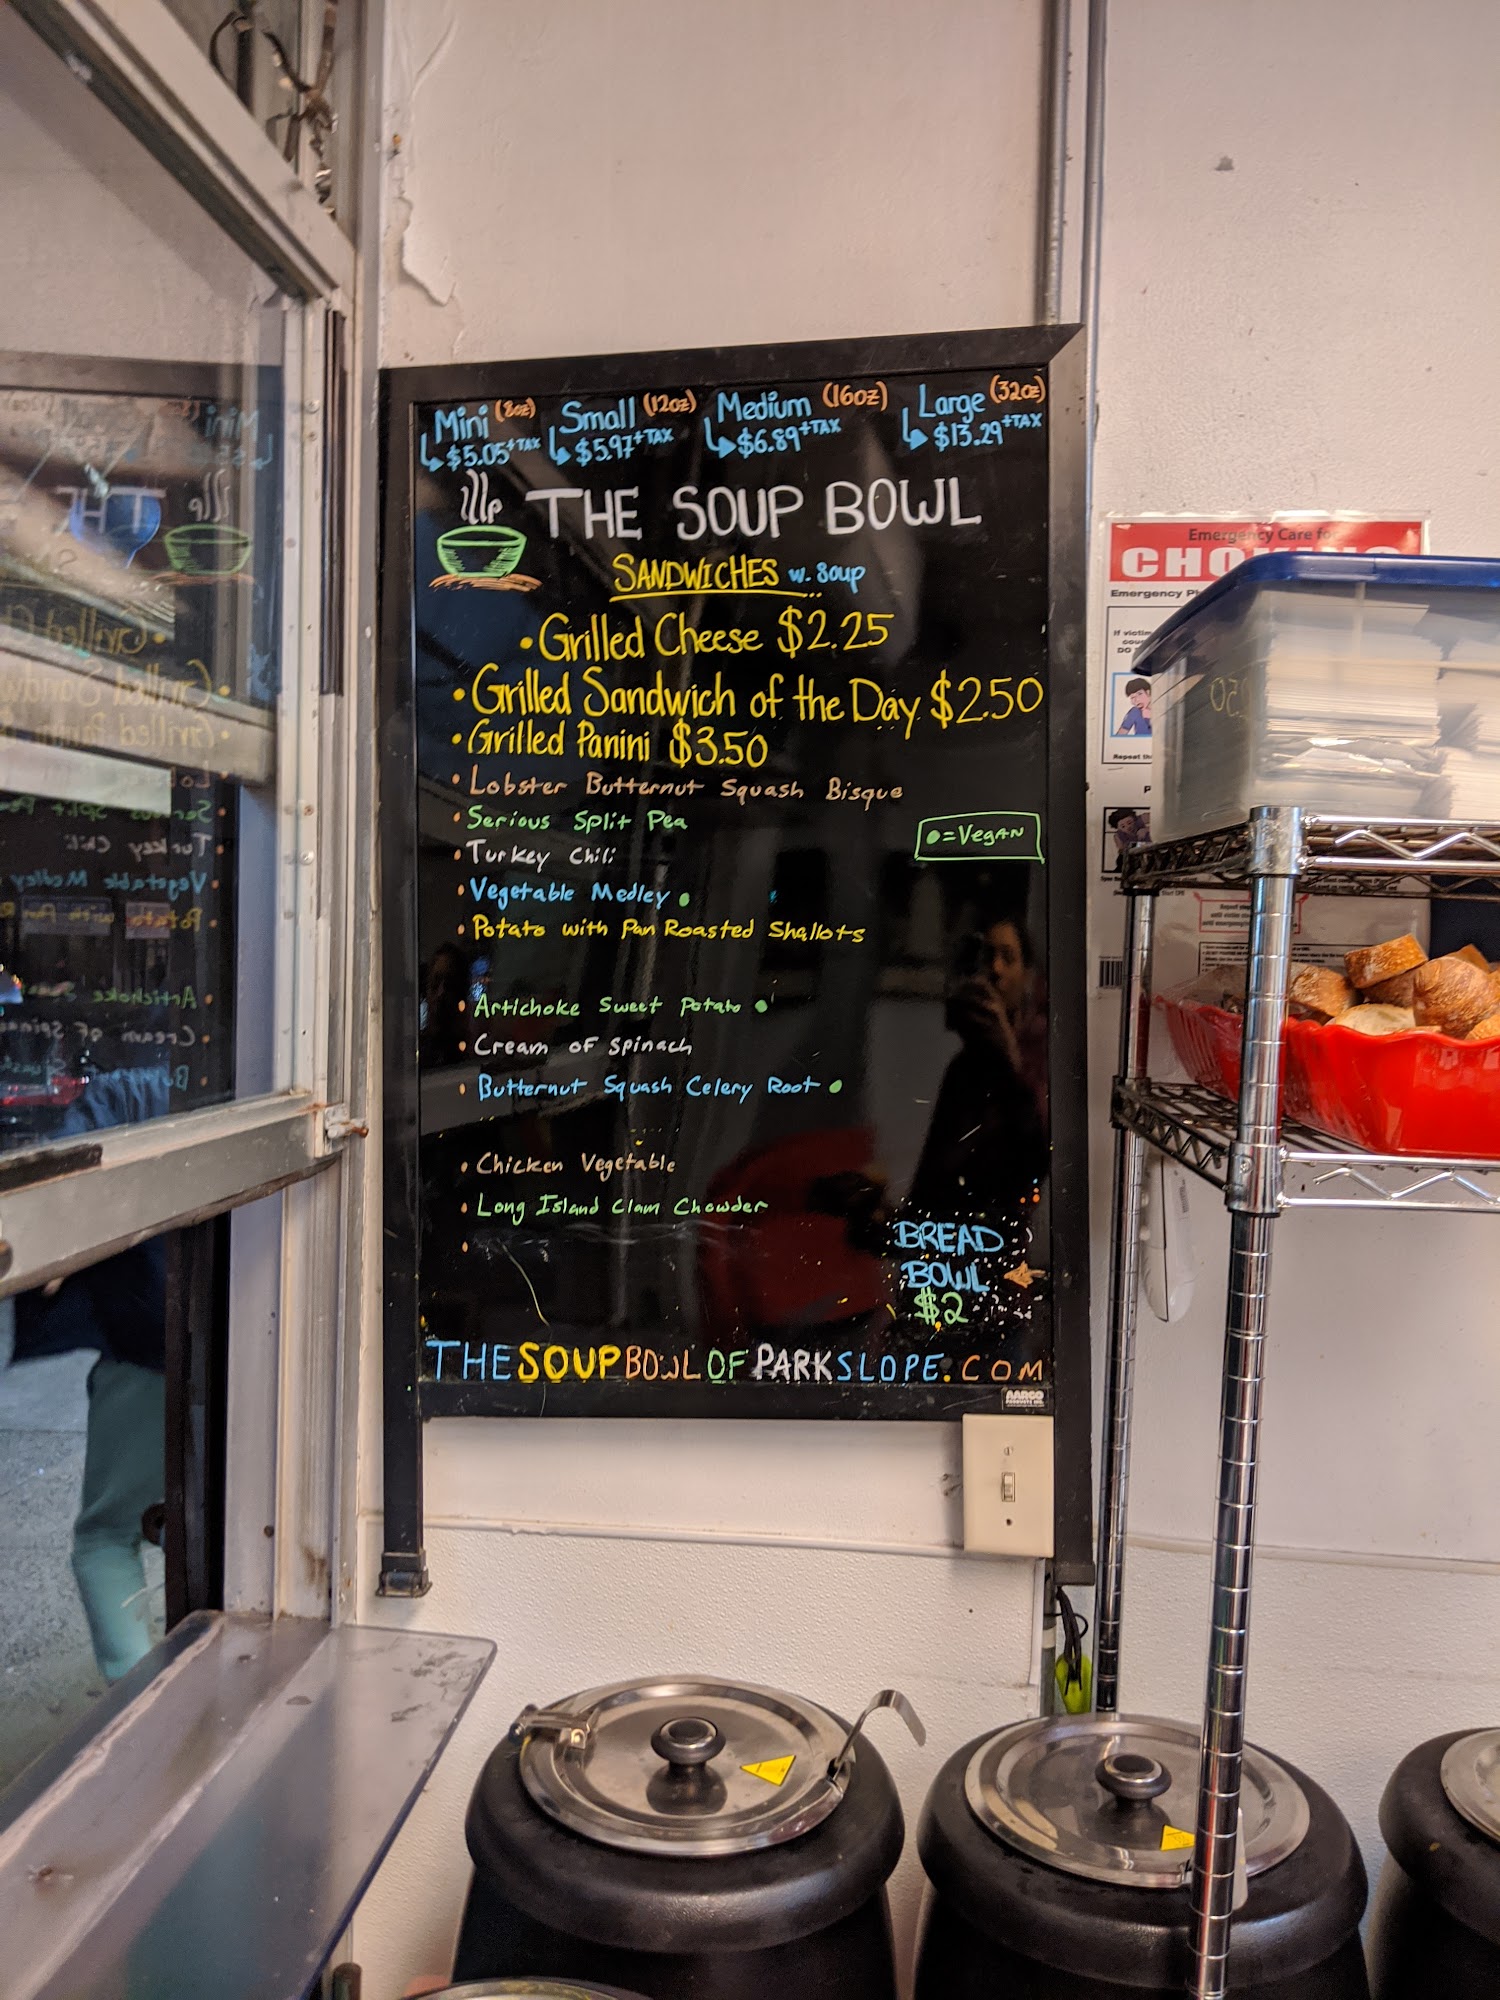 Mini (8oz) Small (12oz) Medium (16oz) Large (32oz)
$5.05+TAX $5.97+TAX $6.89+TAX $13.29+TAX
THE SOUP BOWL
SANDWICHES w. Soup
• Grilled Cheese $2.25
• Grilled Sandwich of the Day $2.50
• Grilled Panini $3.50
• Lobster Butternut Squash Bisque
• Serious Split Pea
●=Vegan
• Turkey Chili
• Vegetable Medley ●
• Potato with Pan Roasted Shallots
• Artichoke Sweet Potato ●
• Cream of Spinach
• Butternut Squash Celery Root ●
• Chicken Vegetable
• Long Island Clam Chowder
BREAD
BOWL
$2
THESOUPBOWLOFPARKSLOPE.COM
AARCO
Emergency Care for
CHOKING
Emergency
If victim
DO
Repeat